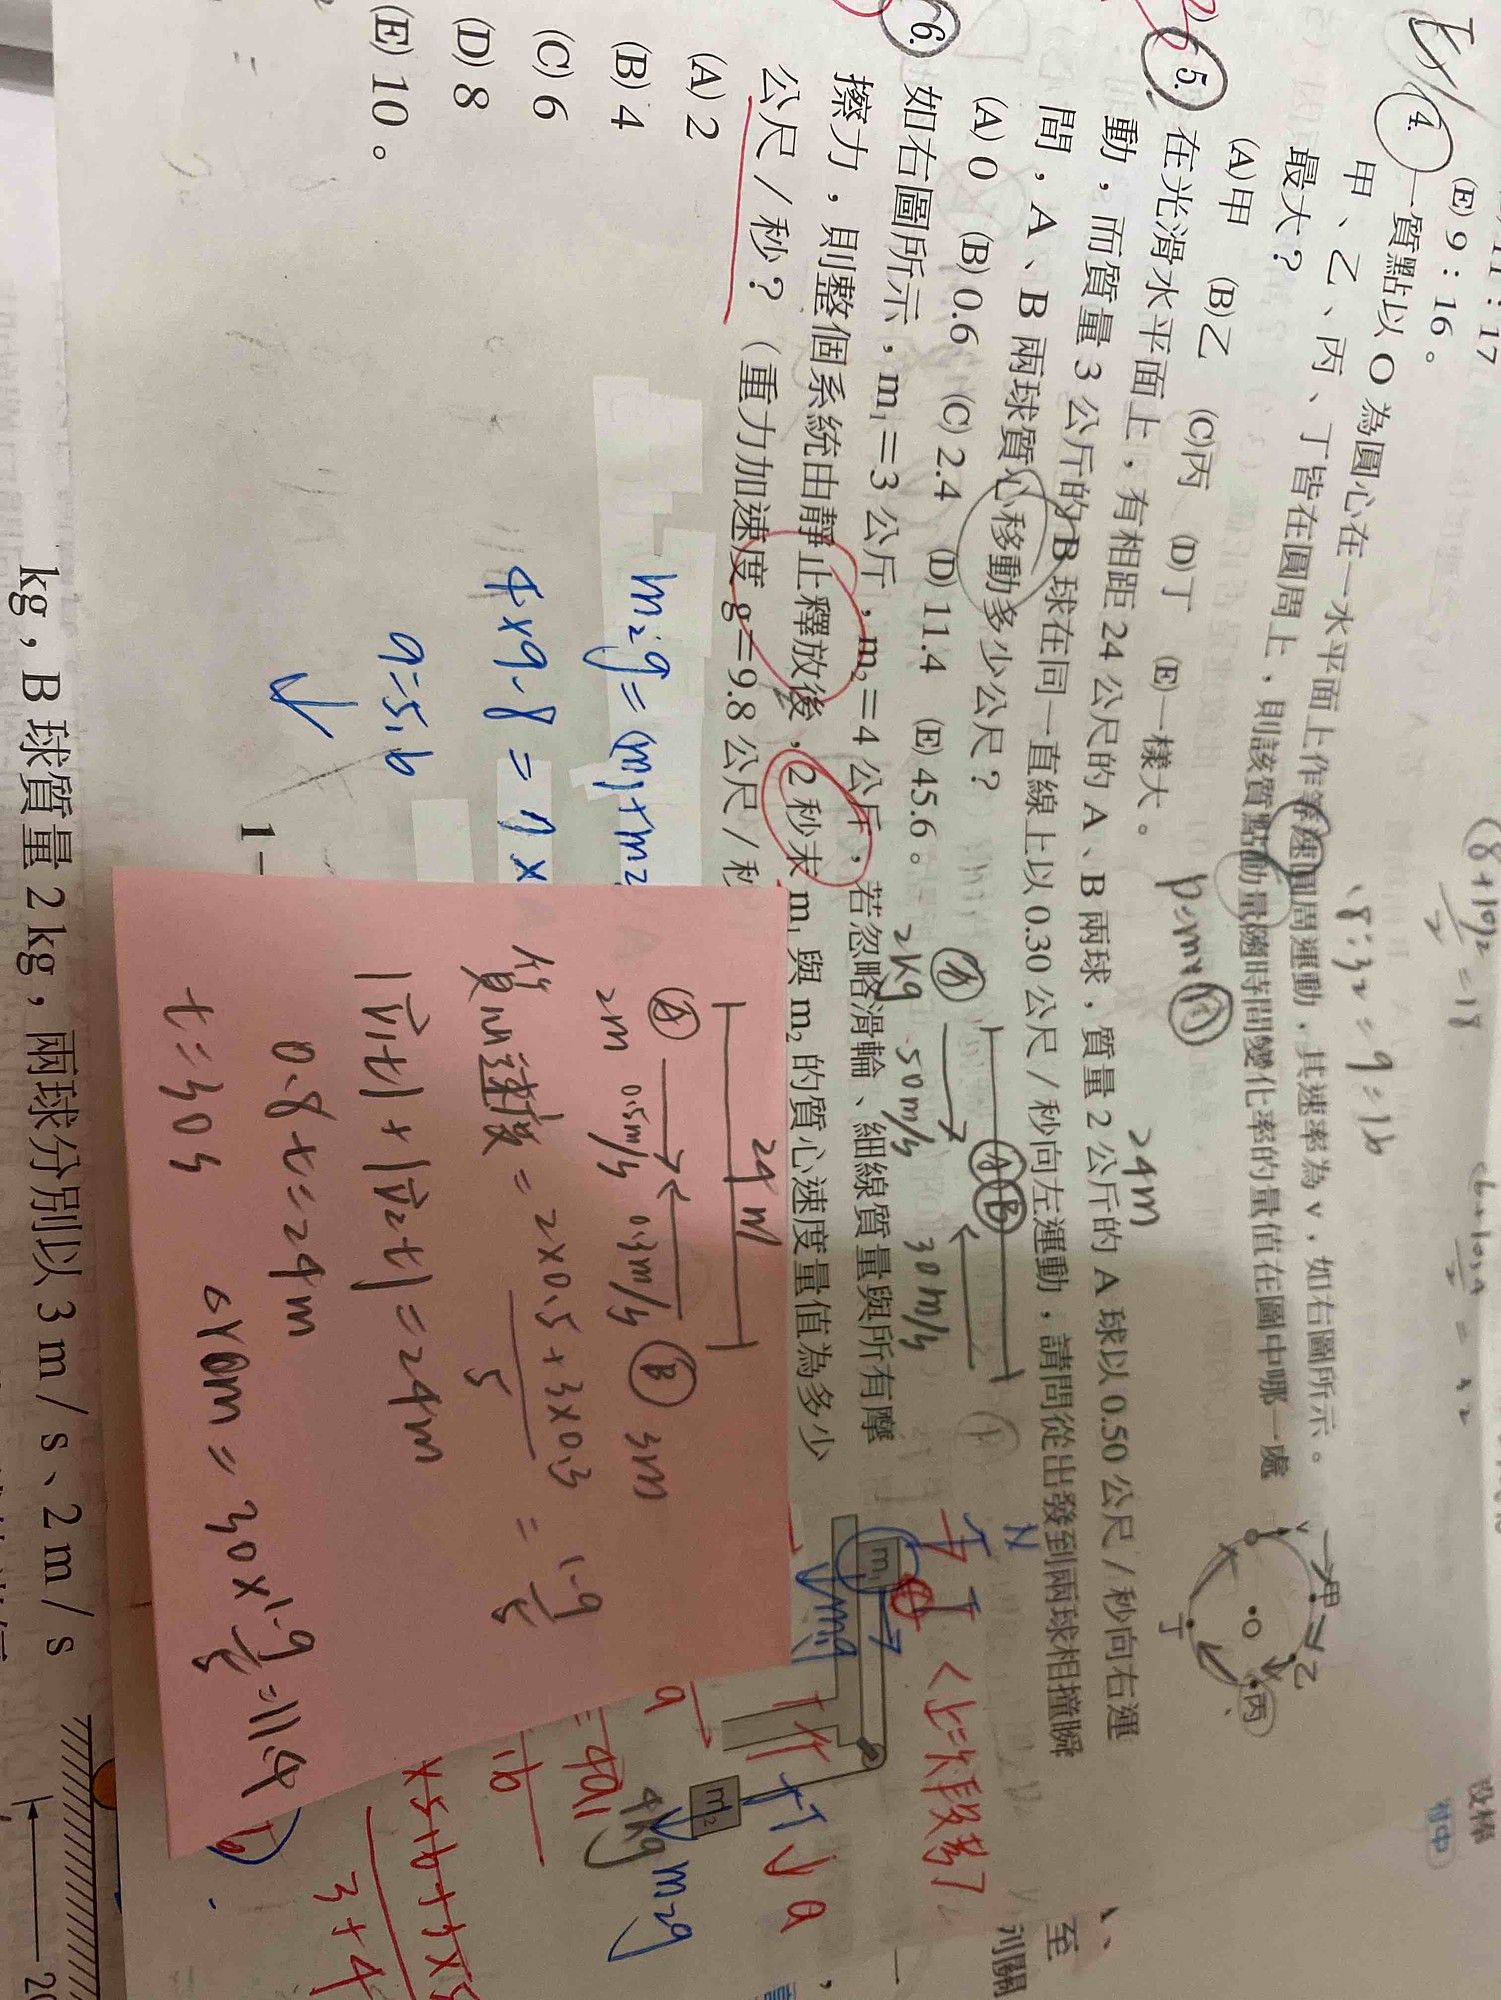 (E) 9：16。
Ex/
4. 一質點以 O 為圓心在一水平面上作等速圓周運動，其速率為 v，如右圖所示。
甲、乙、丙、丁皆在圓周上，則該質點動量隨時間變化率的量值在圖中哪一處
最大？
(A)甲 (B)乙 (C)丙 (D)丁 (E)一樣大。
5. 在光滑水平面上，有相距 24 公尺的 A、B 兩球，質量 2 公斤的 A 球以 0.50 公尺／秒向右運
動，而質量 3 公斤的 B 球在同一直線上以 0.30 公尺／秒向左運動，請問從出發到兩球相撞瞬
間，A、B 兩球質心移動多少公尺？
(A) 0 (B) 0.6 (C) 2.4 (D) 11.4 (E) 45.6。
6. 如右圖所示，m₁＝3 公斤，m₂＝4 公斤，若忽略滑輪、細線質量與所有摩
擦力，則整個系統由靜止釋放後，2 秒末 m₁ 與 m₂ 的質心速度量值為多少
公尺／秒？（重力加速度 g＝9.8 公尺／秒
(A) 2
(B) 4
(C) 6
(D) 8
(E) 10。
甲
乙
丙
丁
O
v
24m
2kg 50m/s 30m/s
A B
m₁
m₂
4kg
m₂g
m₂g = (m₁+m₂
4×9.8 = 7×
a=5.6
24m
A 2m 0.5m/s 0.3m/s B 3m
質心速度 = 2×0.5+3×0.3 / 5 = 1.9/5
|v₁t| + |v₂t| = 24m
0.8t = 24m
t = 30s
= 30 × 1.9/5 = 11.4
3+4
1–
kg，B 球質量 2 kg，兩球分別以 3 m／s、2 m／s